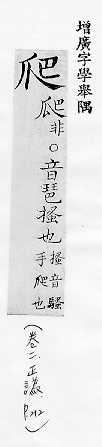 增廣字學舉隅
爬
非○音琶搔也
搔音騷
手爬也
(卷二正譌 P.212)